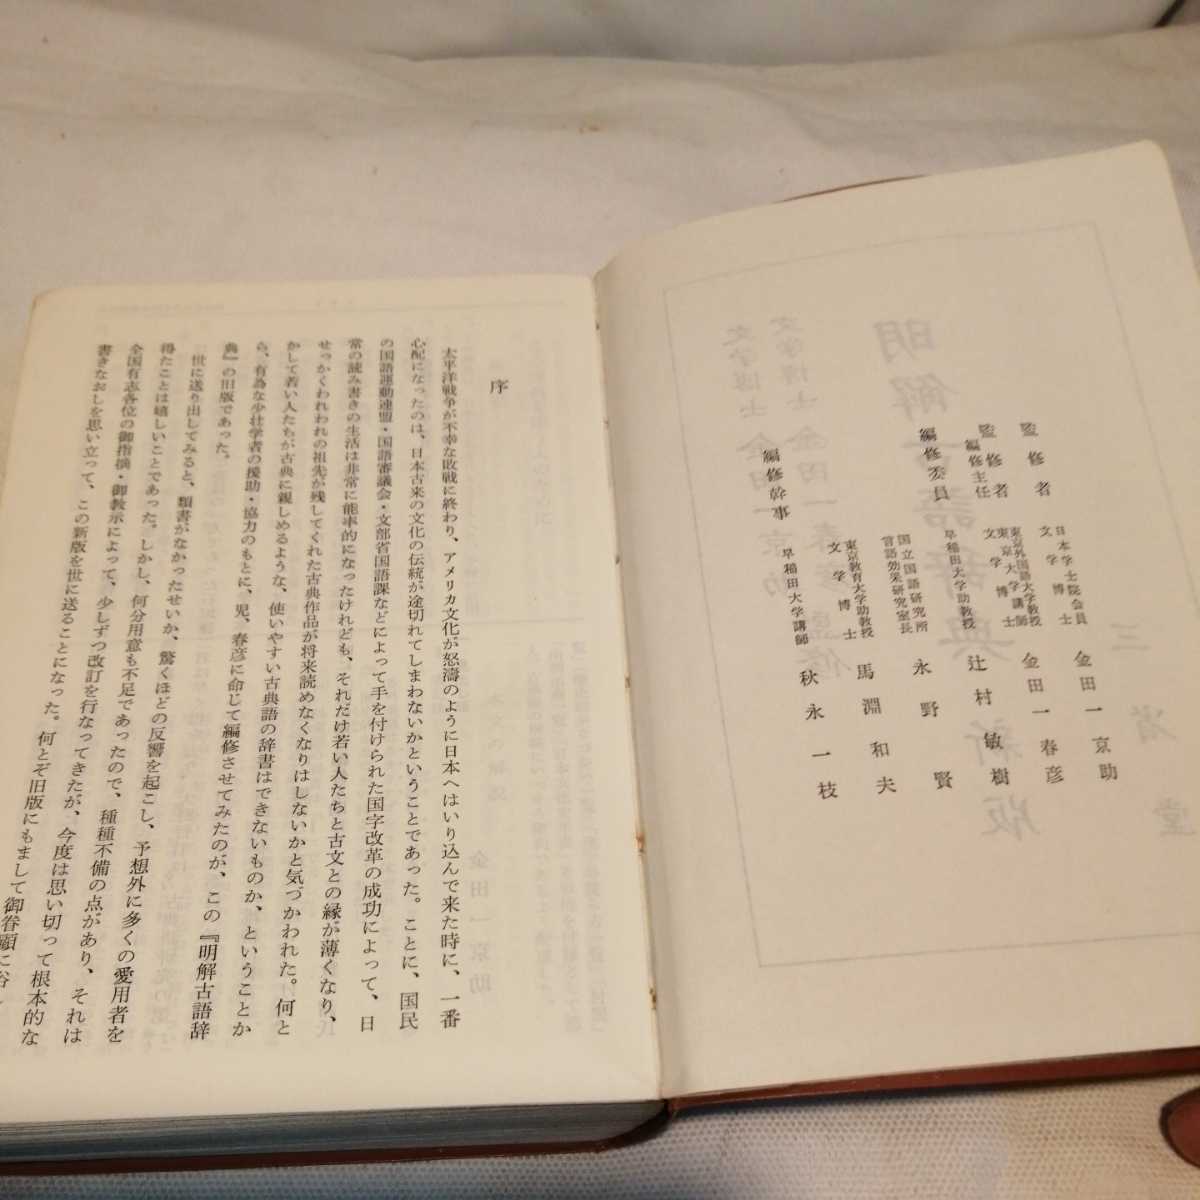 監修者
日本学士院会員
文学博士
金田一京助
監修者
編修主任
東京外国語大学教授
東京大学講師
文学博士
金田一春彦
編修委員
早稲田大学助教授
辻村敏樹
国立国語研究所
言語効果研究室長
永野賢
東京教育大学助教授
文学博士
馬淵和夫
編修幹事
早稲田大学講師
秋永一枝
明解古語辞典 新版
文学博士 金田一京助
文学博士 金田一春彦 監修
三省堂
序
金田一京助
太平洋戦争が不幸な敗戦に終わり、アメリカ文化が怒濤のように日本へはいり込んで来た時に、一番
心配になったのは、日本古来の文化の伝統が途切れてしまわないかということであった。ことに、国民
の国語運動連盟・国語審議会・文部省国語課などによって手を付けられた国字改革の成功によって、日
常の読み書きの生活は非常に能率的になったけれども、それだけ若い人たちと古文との縁が薄くなり、
せっかくわれわれの祖先が残してくれた古典作品が将来読めなくなりはしないかと気づかわれた。何と
かして若い人たちが古典に親しめるような、使いやすい古典語の辞書はできないものか、ということか
ら、有為な少壮学者の援助・協力のもとに、児、春彦に命じて編修させてみたのが、この『明解古語辞
典』の旧版であった。
世に送り出してみると、類書がなかったせいか、驚くほどの反響を起こし、予想外に多くの愛用者を
得たことは嬉しいことであった。しかし、何分用意も不足であったので、種種不備の点があり、それは
全国有志各位の御指摘・御教示によって、少しずつ改訂を行なってきたが、今度は思い切って根本的な
書きなおしを思い立って、この新版を世に送ることになった。何とぞ旧版にもまして御眷顧に